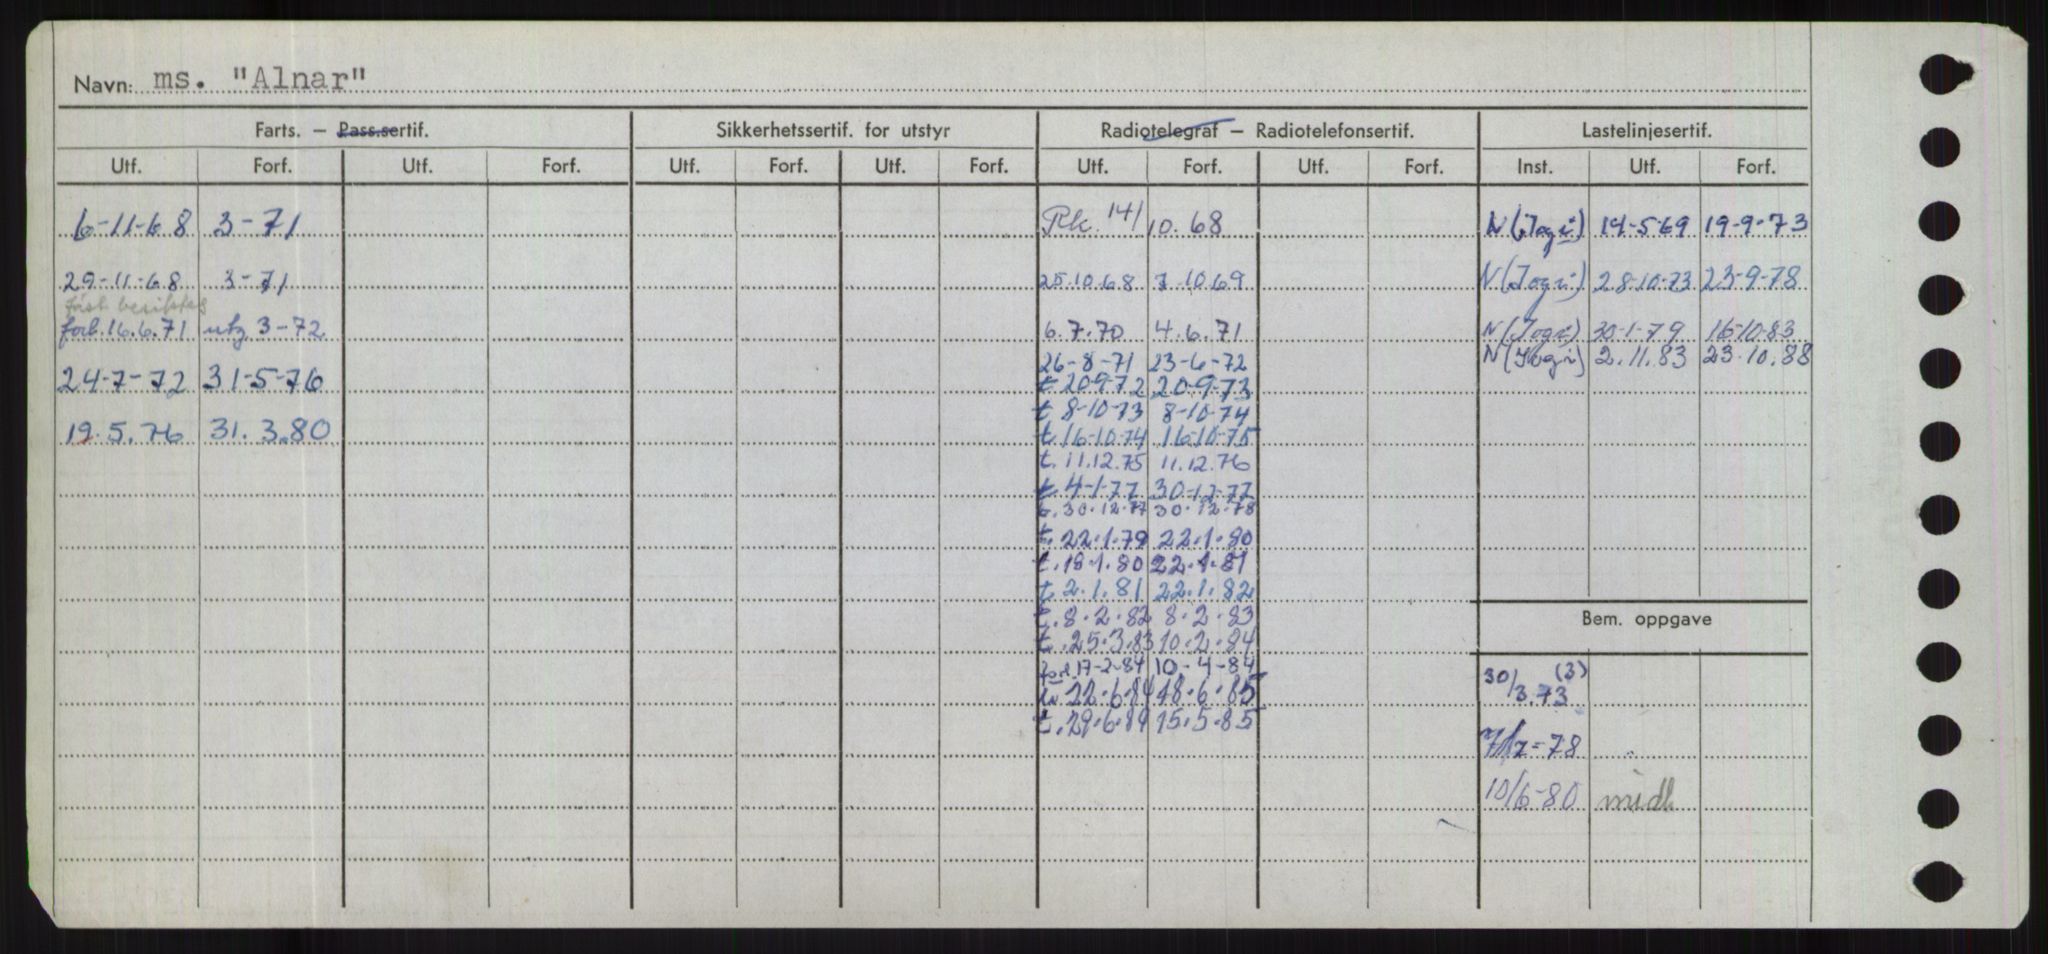 Navn: ms. "Alnar"
Farts. — Pass.sertif. Sikkerhetssertif. for utstyr Radiotelegraf — Radiotelefonsertif. Lastelinjesertif.
Utf. Forf. Utf. Forf. Utf. Forf. Utf. Forf. Utf. Forf. Utf. Forf. Inst. Utf. Forf.
6-11-68 3-71 Rk. 14/10.68 N (Jogi) 14-5-69 19-9-73
29-11-68 3-71 25.10.68 7.10.69 N (Jogi) 28-10-73 23-9-78
forb. 16.6.71 utg 3-72 6.7.70 4.6.71 N (Jogi) 30-1-79 16-10-83
26-8-71 23-6-72 N (Jogi) 2.11.83 23.10.88
24-7-72 31-5-76 t 20-9-72 20-9-73
t 8-10-73 8-10-74
19.5.76 31.3.80 t 16-10-74 16-10-75
t. 11.12.75 11.12.76
t 4-1-77 30-12-77
t. 30.12.77 30.12.78
t. 22.1.79 22.1.80
t. 18.1.80 22.1.81
t 2.1.81 22.1.82
t. 8.2.82 8.2.83
Bem. oppgave
t. 25.3.83 10.2.84
17-2-84 10-4-84 30/3.73 (3)
22.6.84 18.6.85
t. 29.6.84 15.5.85
7/7-78
10/6-80 midl